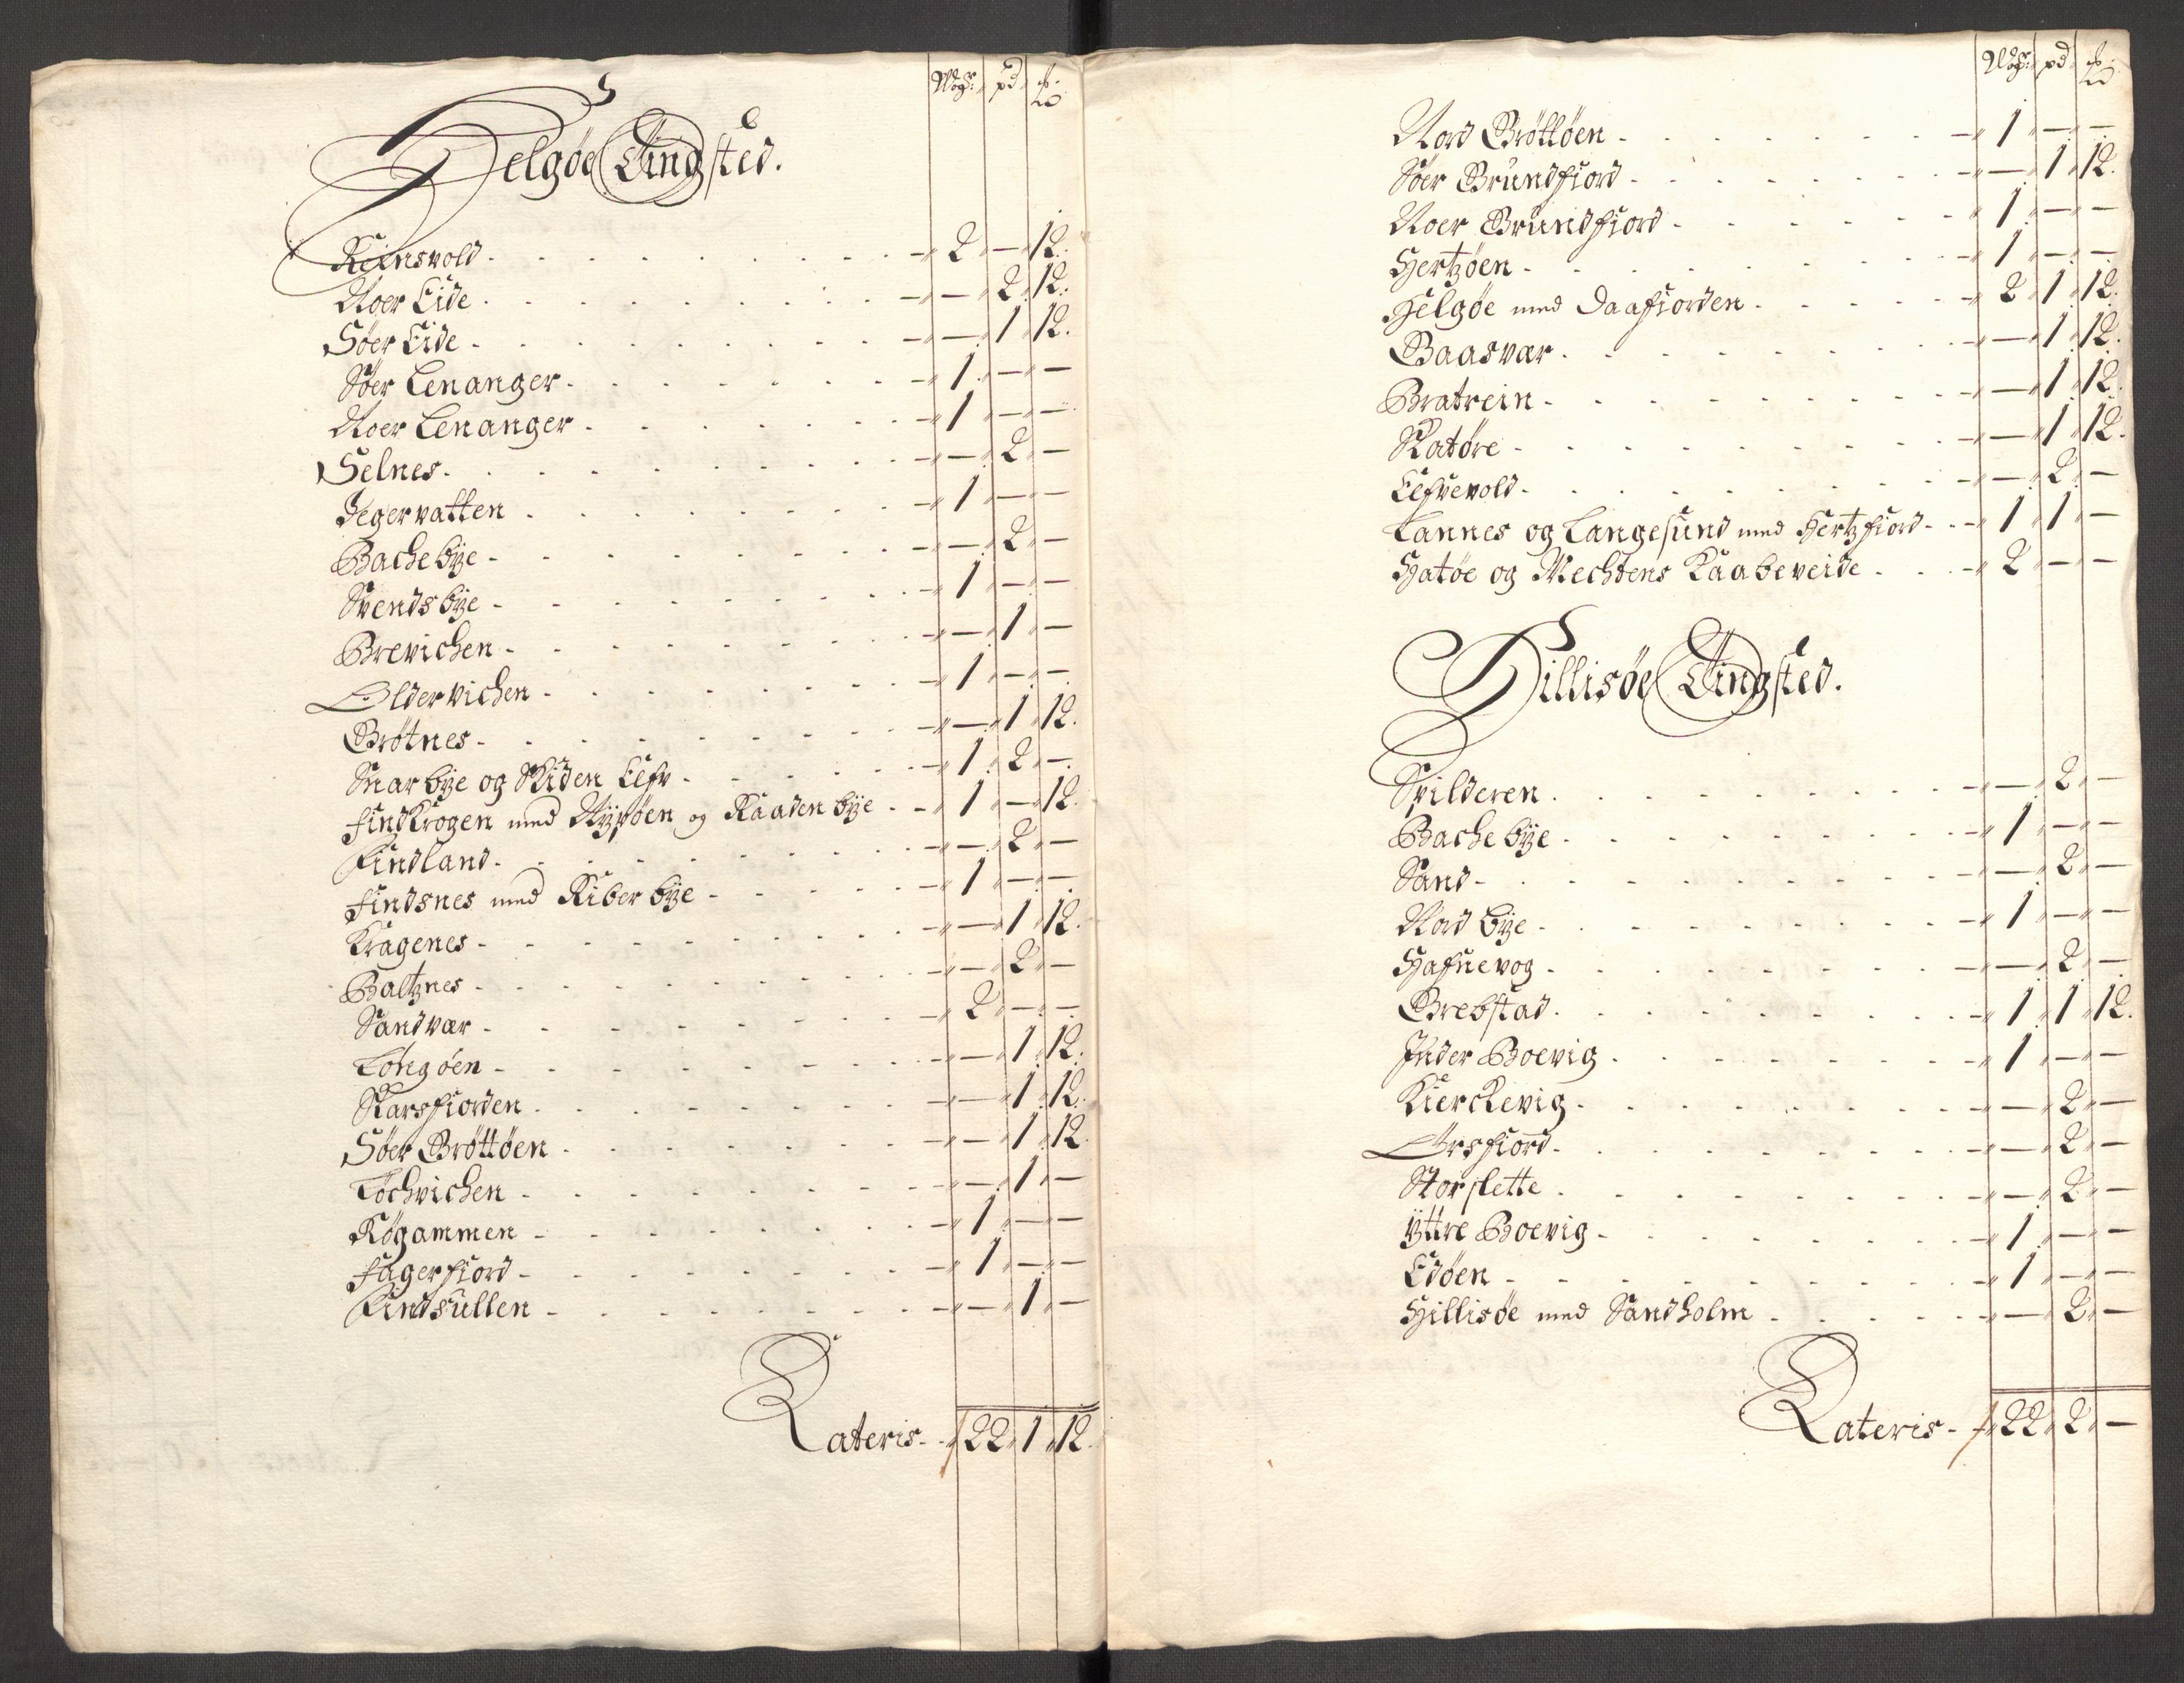 Wog: pd ℔
Helgøe Tingsted.
Reinsvold - 2 - 12.
Noer Eide - - 2. 12.
Søer Eide - - 1 12.
Søer Lenanger - 1 - -
Noer Lenanger - 1 - -
Selnes - - 2 -
Jegervatten - 1 - -
Bachebÿe - - 2 -
Svendsbÿe - 1 - -
Brevichen - - 1 -
Oldervichen - 1 - -
Grøtnes - - 1 12.
Snarbÿe og Skiden Elfv - 1. 2 -
Findkrogen med Nÿpøen og Kaadenbÿe - 1 - 12.
Findland - - 2 -
Findsnes med Riberbÿe - 1 - -
Kragenes - - 1 12.
Baltznes - - 2 -
Sandvær - 2 - -
Longøen - - 1 12.
Skarsfiorden - - 1 12.
Søer Grøttøen - - 1 12
Løchvichen - - 1 -
Køgammen - 1 - -
Fagerfiord - 1 - -
Kindsullen - - 1 -
Lateris - 22 1 12.
Wog: pd ℔
Nord Grøttøen - 1 - -
Søer Grundfiord - - 1 12.
Noer Grundfiord - 1 - -
Hertzøen - 1 - -
Helgøe med Daafiorden - 2 1 12.
Baasvær - - 1 12.
Bratrein - - 1 12.
Skatøre - - 1 12.
Elfvevold - - 2 -
Lannes og Langesund med Hertzfiord - 1 1 -
Hatøe og Mechtens Kaabeveide - 2 - -
Hillisøe Tingsted.
Spilderen - - 2 -
Bachebÿe - 1 - -
Sand - - 2 -
Nordbÿe - 1 - -
Hafnevog - - 2 -
Grebstad - 1 1 12.
Inder Boevig - 1 - -
Kierckevig - - 2 -
Ørsfiord - - 2 -
Storslette - - 2 -
Ÿttre Boevig - 1 - -
Edøen - 1 - -
Hillisøe med Sandholm - - 2 -
Lateris - 22 2 -